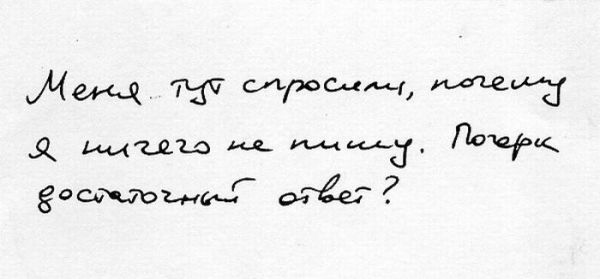 Меня тут спросили, почему
я ничего не пишу. Почерк
достаточный ответ?